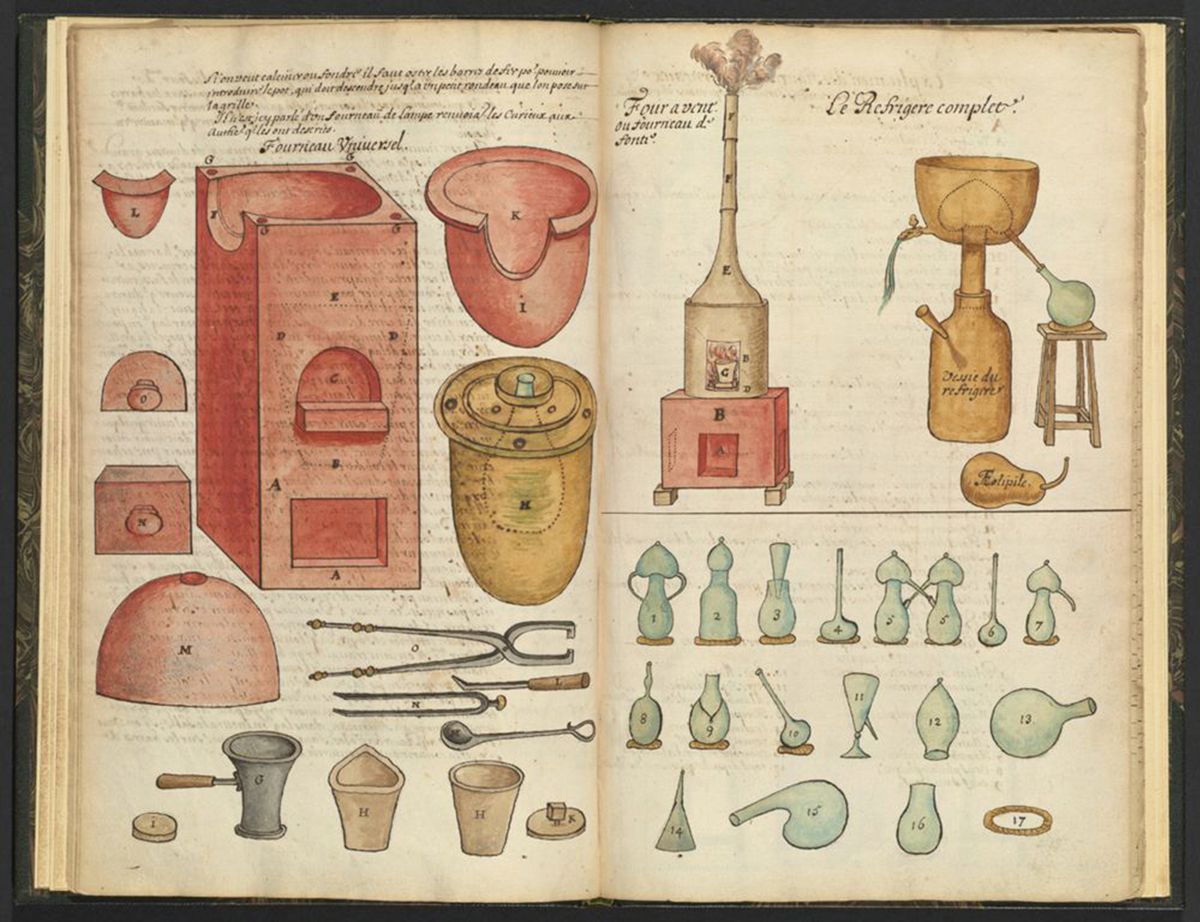 Si on veut calciner ou fondre il faut oster les barres de fer po.r pouvoir
introduire le pot, qui doit descendre jusq'a un petit rondeau que l'on pose sur
la grille.
Il n'est icy parlé d'un fourneau de lampe renvoiāt les Curieux aux
Auth.s q.i les ont descrits.
Fourneau Vniversel.
G G
L
F
K
G G
E
I
D D
C
O
B
A
N
H
A
M
O
L
N
M
G
H
H
I
K
Four a vent
ou fourneau de
fonte
Le Refrigere complet
F
F
E
B
G
D
B
A
Vessie du
refrigere
Æolipile.
1 2 3 4 5 5 6 7
8 9 10 11 12 13
14 15 16 17